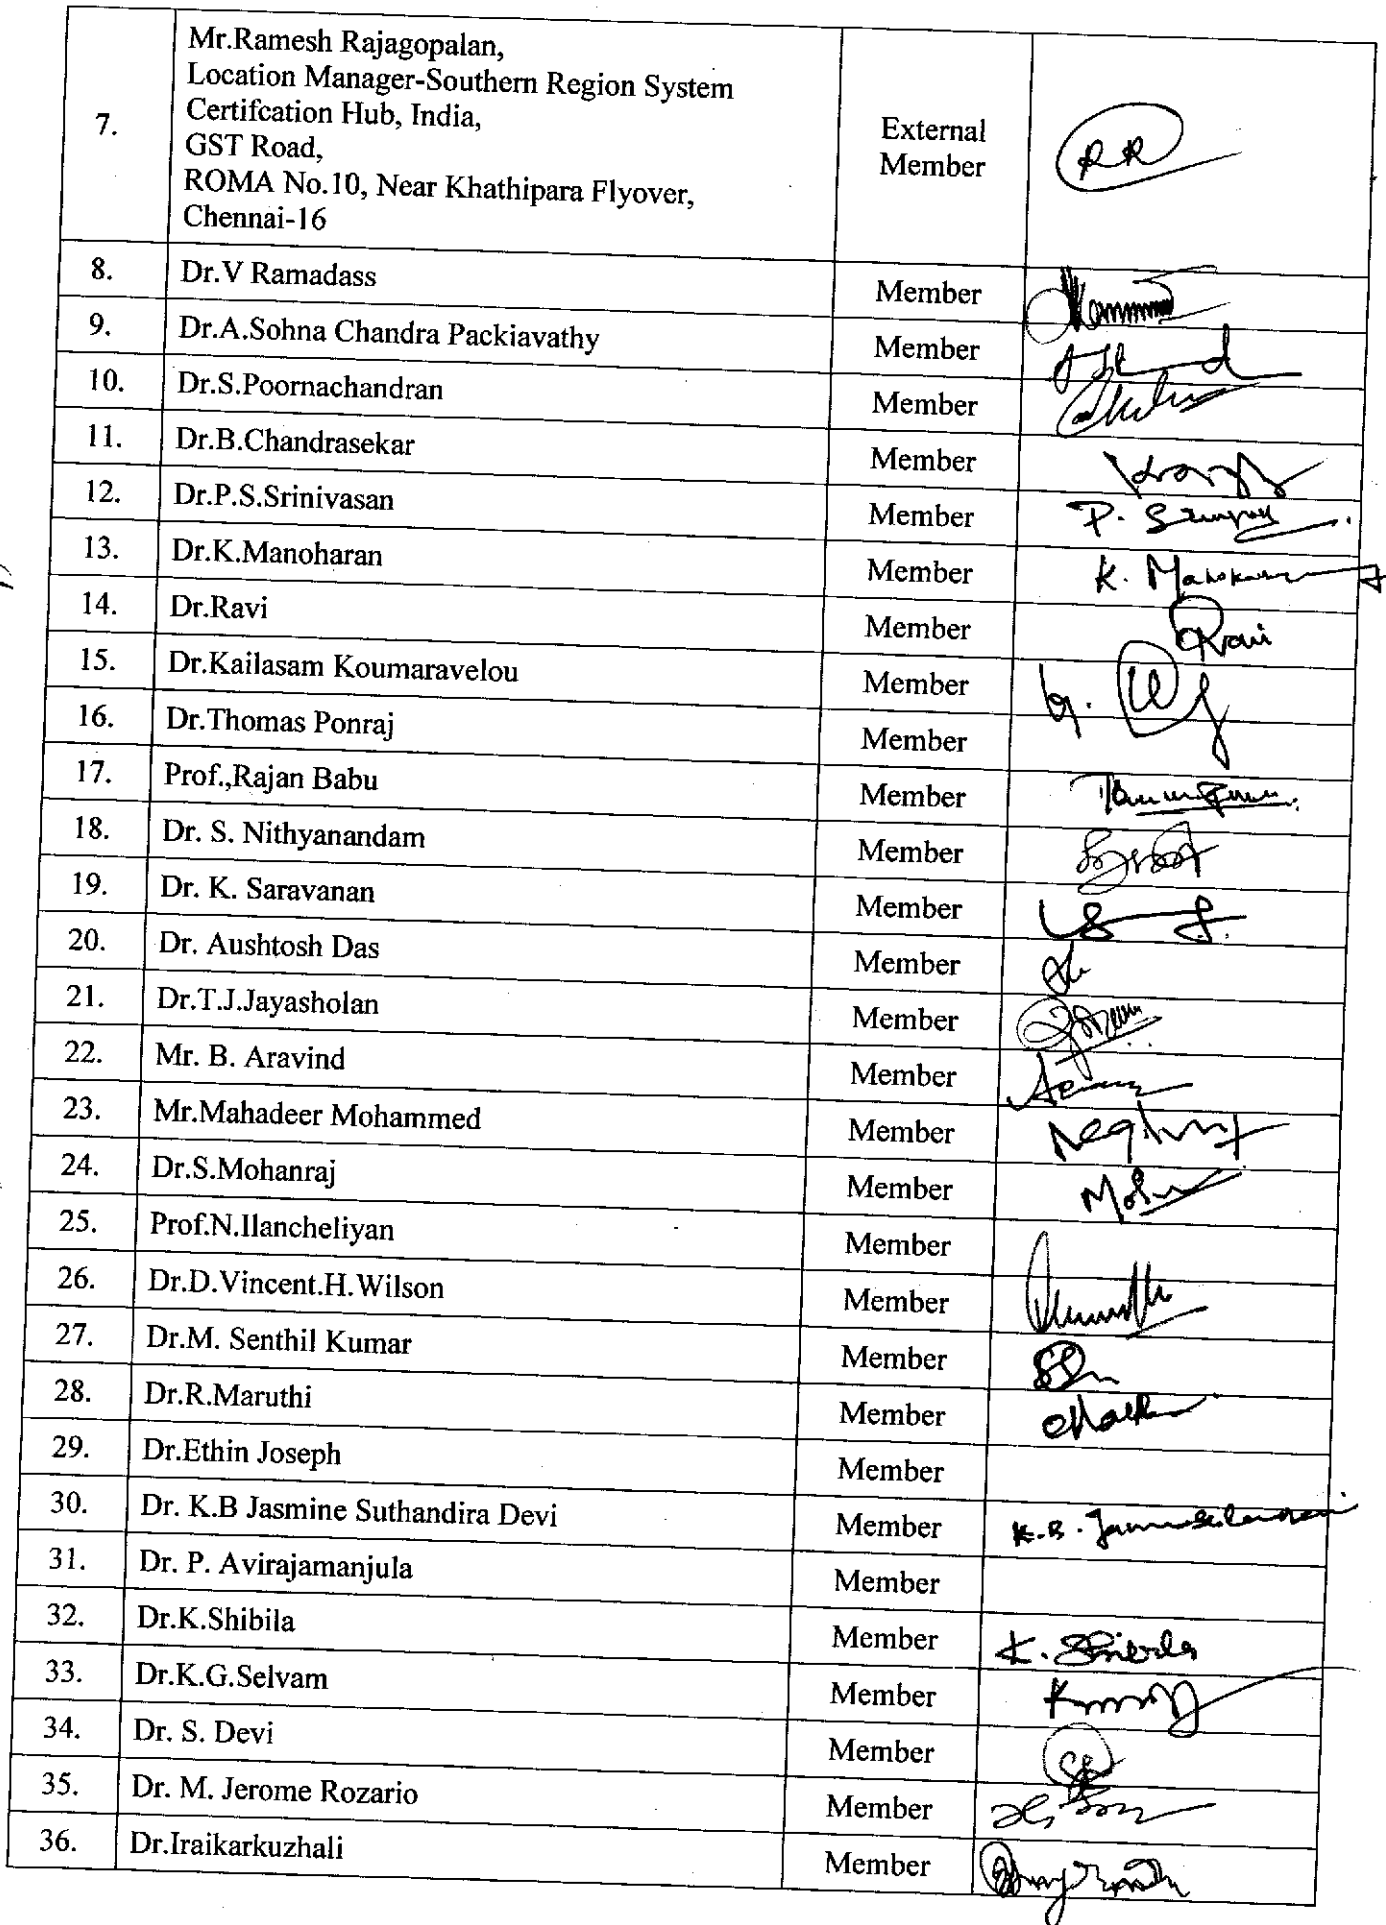 7.
Mr.Ramesh Rajagopalan,
Location Manager-Southern Region System
Certifcation Hub, India,
GST Road,
ROMA No.10, Near Khathipara Flyover,
Chennai-16
External
Member
RR
8. Dr.V Ramadass Member
9. Dr.A.Sohna Chandra Packiavathy Member
10. Dr.S.Poornachandran Member
11. Dr.B.Chandrasekar Member
12. Dr.P.S.Srinivasan Member P.
13. Dr.K.Manoharan Member K.
14. Dr.Ravi Member Ravi
15. Dr.Kailasam Koumaravelou Member
16. Dr.Thomas Ponraj Member
17. Prof.,Rajan Babu Member
18. Dr. S. Nithyanandam Member
19. Dr. K. Saravanan Member
20. Dr. Aushtosh Das Member
21. Dr.T.J.Jayasholan Member
22. Mr. B. Aravind Member
23. Mr.Mahadeer Mohammed Member
24. Dr.S.Mohanraj Member
25. Prof.N.Ilancheliyan Member
26. Dr.D.Vincent.H.Wilson Member
27. Dr.M. Senthil Kumar Member
28. Dr.R.Maruthi Member
29. Dr.Ethin Joseph Member
30. Dr. K.B Jasmine Suthandira Devi Member K.B.
31. Dr. P. Avirajamanjula Member
32. Dr.K.Shibila Member K.
33. Dr.K.G.Selvam Member
34. Dr. S. Devi Member
35. Dr. M. Jerome Rozario Member
36. Dr.Iraikarkuzhali Member